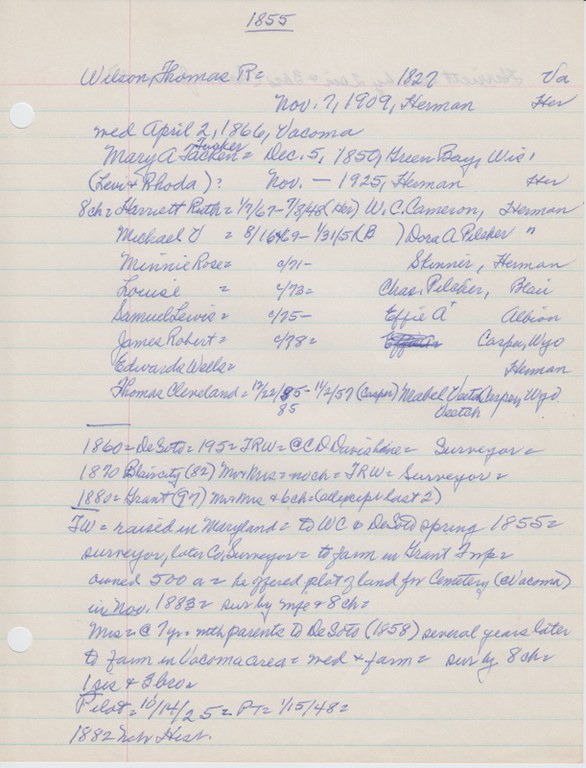 1855
Wilson, Thomas R = 1827 Va
Nov. 7, 1909, Herman Her
med April 2, 1866, Vacoma
Tucker
Mary A Tacken = Dec. 5, 1850, Green Bay, Wis,
(Levi & Rhoda)? Nov. — 1925, Herman Her
8ch = Harriett Ruth = 1/7/67 - 7/8/48 (Her) W. C. Cameron, Herman
Michael V = 8/16/69 - 1/31/51 (B ) Dora A Pilcher "
Minnie Rose = c/71 - Skinner, Herman
Louise = c/73 = Chas. Pilcher, Blair
Samuel Lewis = c/75 - Effie A Albion
James Robert = c/78 = Casper, Wyo
Edwarda Wells = Herman
Thomas Cleveland = 12/22/85 - 11/2/57 (Casper) Mabel Casper, Wyo
85 Veetch
1860 = DeSoto = 195 = TRW = @ C D Davis home = Surveyor =
1870 Blair city (82) Mr & Mrs = no ch = TRW = Surveyor =
1880 = Grant (97) Mr & Mrs & 6 ch = (all except last 2)
TW = raised in Maryland = to WC & DeSoto spring 1855 =
surveyor, later Co. Surveyor = to farm in Grant Twp =
owned 500 a = he offered plot of land for Cemetery (@ Vacoma)
in Nov. 1883 = sur by wife & 8 ch =
Mrs = @ 7 yr = with parents to DeSoto (1858) several years later
to farm in Vacoma area = med & farm = sur by 8 ch =
1 sis & 3 bro =
Pilot = 10/14/25 = PT = 1/15/48 =
1882 Neb Hist.